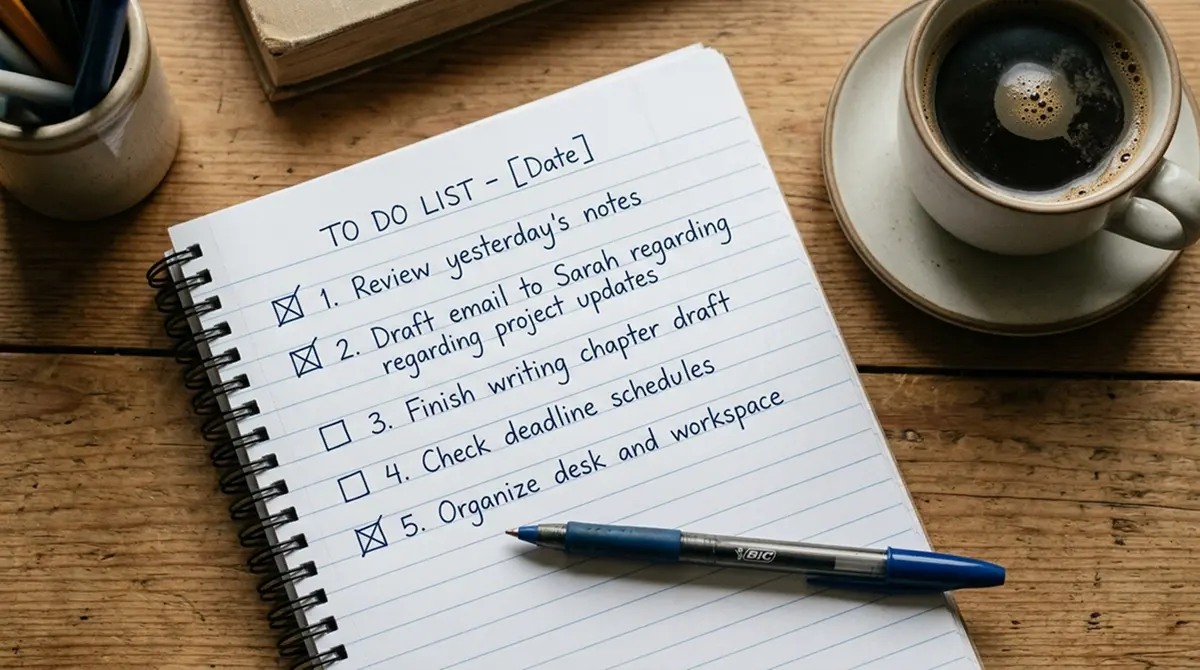 TO DO LIST - [Date]
☒ 1. Review yesterday's notes
☒ 2. Draft email to Sarah regarding
regarding project updates
☐ 3. Finish writing chapter draft
☐ 4. Check deadline schedules
☒ 5. Organize desk and workspace
BIC